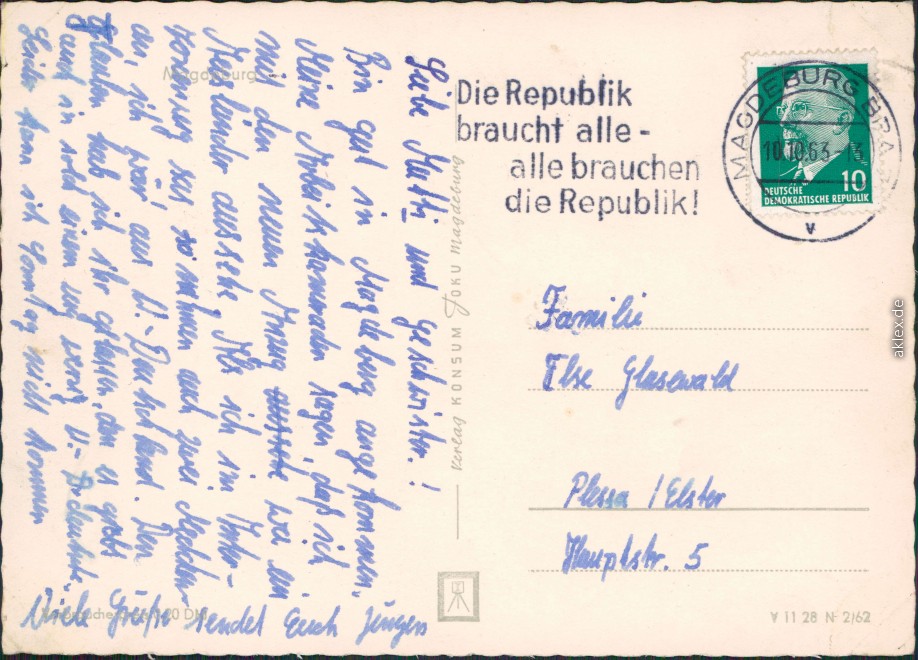 Magdeburg
Liebe Mutti und Geschwister!
Bin gut in Magdeburg angekommen.
Meine Arbeitskameraden sagen, daß ich
mit den neuen Anzug aussehe wie ein
Ausländer aussehe. Als ich im
so sahen auch zwei Mädchen
an, ich wär aus W.-Deutschland. Den
Glauben hab ich ihr gelassen, denn es gibt
ja auch in
Leider kann ich Sonntag nicht kommen
Viele Grüße sendet Euch Jürgen
Verlag KONSUM FOKU Magdeburg
Die Republik
braucht alle -
alle brauchen
die Republik!
MAGDEBURG BPA
10.10.63-13
V
10
DEUTSCHE
DEMOKRATISCHE REPUBLIK
Familie
Ilse Glasewald
Plessa / Elster
Hauptstr. 5
V 11 28 N 2/62
aklex.de